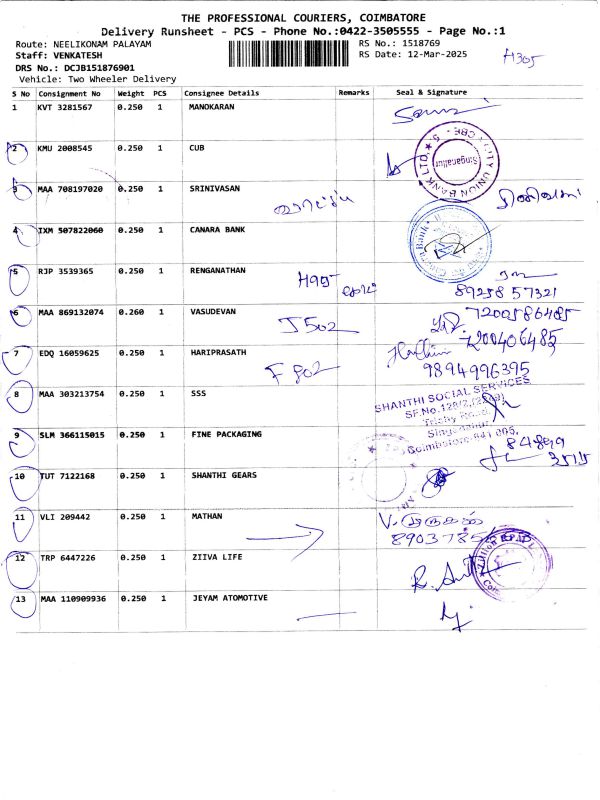 THE PROFESSIONAL COURIERS, COIMBATORE
Delivery Runsheet - PCS - Phone No.:0422-3505555 - Page No.:1
Route: NEELIKONAM PALAYAM RS No.: 1518769
Staff: VENKATESH RS Date: 12-Mar-2025 H305
DRS No.: DCJB151876901
Vehicle: Two Wheeler Delivery
S No Consignment No Weight PCS Consignee Details Remarks Seal & Signature
1 KVT 3281567 0.250 1 MANOKARAN
2 KMU 2008545 0.250 1 CUB
CITY UNION BANK LTD. Singanallur
3 MAA 708197020 0.250 1 SRINIVASAN
4 IXM 507822060 0.250 1 CANARA BANK
5 RJP 3539365 0.250 1 RENGANATHAN
89258 57321
6 MAA 869132074 0.260 1 VASUDEVAN J502 7200586485
7 EDQ 16059625 0.250 1 HARIPRASATH F 802 7200406485
9894996395
8 MAA 303213754 0.250 1 SSS
SHANTHI SOCIAL SERVICES
Trichy Road,
Singanallur,
Coimbatore-641 005.
9 SLM 366115015 0.250 1 FINE PACKAGING
10 TUT 7122168 0.250 1 SHANTHI GEARS
11 VLI 209442 0.250 1 MATHAN
12 TRP 6447226 0.250 1 ZIIVA LIFE
13 MAA 110909936 0.250 1 JEYAM ATOMOTIVE